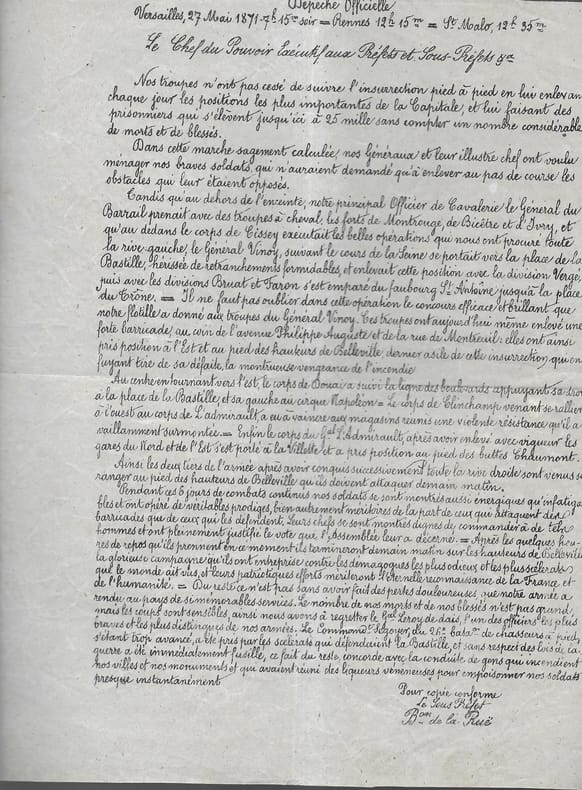 Dépêche Officielle
Versailles, 27 Mai 1871-7h 15m soir = Rennes 12h 15m = St Malo, 12h 35m
Le Chef du Pouvoir Exécutif aux Préfets et Sous-Préfets
Nos troupes n'ont pas cessé de suivre l'insurrection pied à pied en lui enlevan
chaque jour les positions les plus importantes de la Capitale, et lui faisant des
prisonniers qui s'élèvent jusqu'ici à 25 mille sans compter un nombre considérable
de morts et de blessés.
Dans cette marche sagement calculée, nos Généraux et leur illustre chef ont voulu
ménager nos braves soldats, qui n'auraient demandé qu'à enlever au pas de course les
obstacles qui leur étaient opposés.
Tandis qu'au dehors de l'enceinte, notre principal Officier de Cavalerie le Général du
Barrail prenait avec des troupes à cheval, les forts de Montrouge, de Bicêtre et d'Ivry, et
qu'au dedans le corps de Cissey exécutait les belles opérations qui nous ont procuré toute
la rive gauche, le Général Vinoy, suivant le cours de la Seine se portait vers la place de la
Bastille, hérissée de retranchements formidables, et enlevait cette position avec la division Vergé,
puis avec les divisions Bruat et Faron s'est emparé du faubourg St Antoine jusqu'à la place
du Trône. = Il ne faut pas oublier dans cette opération le concours efficace et brillant que
notre flotille a donné aux troupes du Général Vinoy. Ces troupes ont aujourd'hui même enlevé une
forte barricade, au coin de l'avenue Philippe Auguste et de la rue de Montreuil: elles ont ainsi
pris position à l'Est et au pied des hauteurs de Belleville, dernier asile de cette insurrection qui en
fuyant tire de sa défaite, la montrueuse vengeance de l'incendie
Au centre en tournant vers l'est, le corps de Douai a suivi la ligne des boulevards appuyant sa dro
à la place de la Bastille, et sa gauche au cirque Napoléon = Le corps de Clinchamp venant se rallier
à l'ouest au corps de L'admirault, a eu à vaincre aux magasins réunis une violente résistance qu'il a
vaillamment surmontée. = Enfin le corps du Gal L'Admirault, après avoir enlevé avec vigueur les
gares du Nord et de l'Est s'est porté à la Villette et a pris position au pied des buttes Chaumont.
Ainsi les deux tiers de l'armée après avoir conquis successivement toute la rive droite sont venus se
ranger au pied des hauteurs de Belleville qu'ils doivent attaquer demain matin.
Pendant ces 6 jours de combats continus nos soldats se sont montrés aussi énergiques qu'infatiga
bles et ont opéré de véritables prodiges, bien autrement méritoires de la part de ceux qui attaquent des
barricades que de ceux qui les défendent. Leurs chefs se sont montrés dignes de commander à de tels
hommes et ont pleinement justifié le vote que l'Assemblée leur a décerné. = Après les quelques heu-
res de repos qu'ils prennent en ce moment ils termineront demain matin sur les hauteurs de Belleville
la glorieuse campagne qu'ils ont entreprise contre les démagogues les plus odieux et les plus scélérats
que le monde ait vus, et leurs patriotiques efforts mériteront l'éternelle reconnaissance de la France et
de l'humanité. = Du reste ce n'est pas sans avoir fait des pertes douloureuses que notre armée a
rendu au pays de si mémorables services. Le nombre de nos morts et de nos blessés n'est pas grand,
mais les coups sont sensibles, ainsi nous avons à regretter le Gal Leroy de dais, l'un des officiers les plus
braves et les plus distingués de nos armées. Le Command Ségoyer, du 26e batn de chasseurs à pied,
s'étant trop avancé, a été pris par les scélérats qui défendaient la Bastille, et sans respect des lois de la
guerre a été immédiatement fusillé, ce fait du reste, concorde avec la conduite de gens qui incendient
nos villes et nos monuments et qui avaient réuni des liqueurs vénéneuses pour empoisonner nos soldats
presque instantanément
Pour copie conforme
Le Sous Préfet
Bon de la Ruë